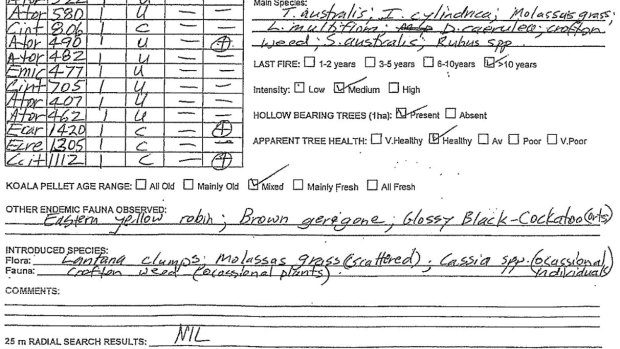 Ator 522 1 U — —
Ator 580 1 U — —
Cint 806 1 C — —
Ator 490 1 U — 4
Ator 482 1 U — —
Emic 477 1 U — —
Cint 705 1 U — —
Ator 407 1 U — —
Ator 462 1 U — —
Ecar 1420 1 C — 4
Ecre 1305 1 C — —
Ccit 1112 1 C — 4
Main Species:
T. australis; I. cylindrica; Molassus grass;
L. multiflora; D. caerulea; crofton
weed; S. australis; Rubus spp.
LAST FIRE: 1-2 years 3-5 years 6-10years >10 years
Intensity: Low Medium High
HOLLOW BEARING TREES (1ha): Present Absent
APPARENT TREE HEALTH: V.Healthy Healthy Av Poor V.Poor
KOALA PELLET AGE RANGE: All Old Mainly Old Mixed Mainly Fresh All Fresh
OTHER ENDEMIC FAUNA OBSERVED:
Eastern yellow robin; Brown gerigone; Glossy Black-Cockatoo (orts)
INTRODUCED SPECIES:
Flora: Lantana clumps; Molassas grass (scattered); Cassia spp. (ocassional individuals)
Fauna: Crofton weed (ocassional plants).
COMMENTS:
25 m RADIAL SEARCH RESULTS: NIL